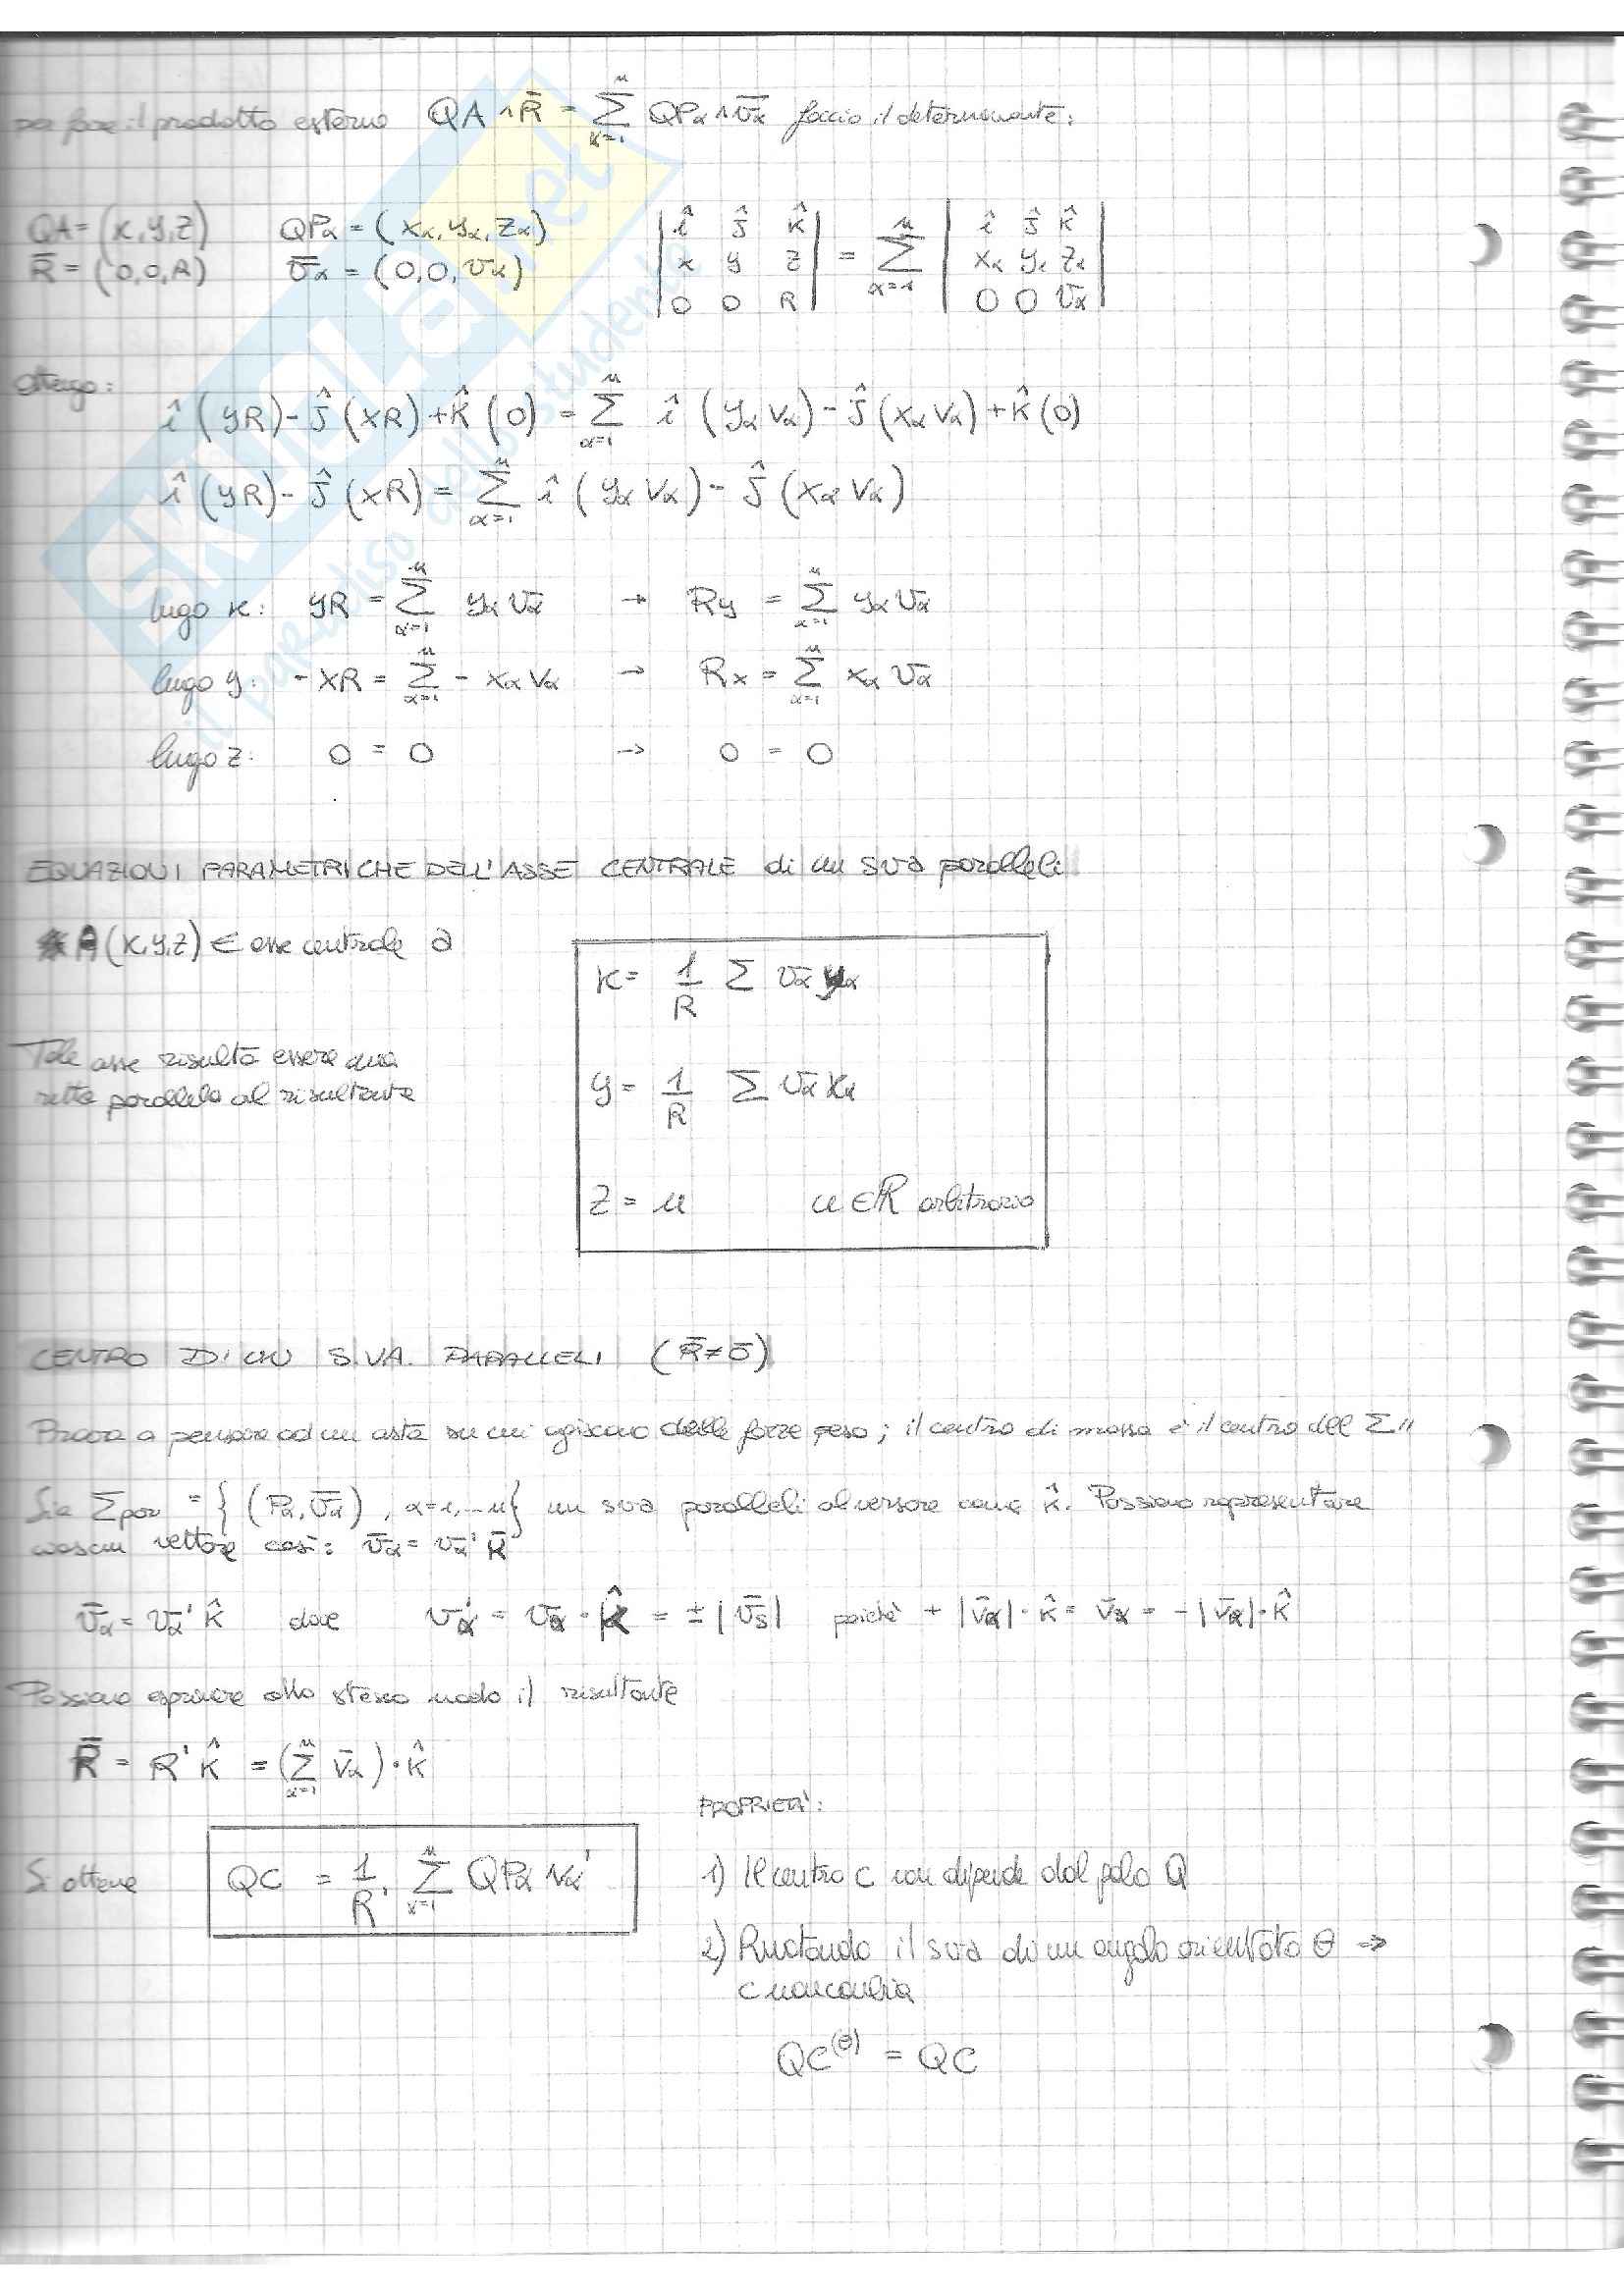 per fare il prodotto esterno QA ∧ R̄ = Σ_{α=1}^{n} QPα ∧ v̄α faccio il determinante:
QA = (x, y, z) QPα = (xα, yα, zα) | î ĵ k̂ | = Σ_{α=1}^{n} | î ĵ k̂ |
R̄ = (0,0,R) v̄α = (0,0,vα) | x y z | | xα yα zα |
| 0 0 R | | 0 0 v̄α |
ottengo:
î (yR) - ĵ (xR) + k̂ (0) = Σ_{α=1}^{n} î (yα vα) - ĵ (xα vα) + k̂ (0)
î (yR) - ĵ (xR) = Σ_{α=1}^{n} î (yα vα) - ĵ (xα vα)
lungo x: yR = Σ_{α=1}^{n} yα v̄α → Ry = Σ_{α=1}^{n} yα v̄α
lungo y: - xR = Σ_{α=1}^{n} - xα vα → Rx = Σ_{α=1}^{n} xα v̄α
lungo z: 0 = 0 → 0 = 0
EQUAZIONI PARAMETRICHE DELL'ASSE CENTRALE di un sva paralleli
A (x, y, z) ∈ asse centrale a
x = 1/R Σ v̄α yα
Tale asse risulta essere una
retta parallela al risultante
y = 1/R Σ v̄α xα
z = u u ∈ R arbitrario
CENTRO DI UN S.V.A. PARALLELI (R̄ ≠ ō)
Prova a pensare ad un asta su cui agiscono delle forze peso; il centro di massa è il centro del Σ//
Sia Σpar = { (Pα, v̄α), α=1,...n } un sva paralleli al versore k̂. Possiamo rappresentare
vettore così: v̄α = v̄α' k̂
v̄α = vα' k̂ dove vα' = v̄α · k̂ = ± |v̄s| poichè + |v̄α| · k̂ = v̄α = - |v̄α| · k̂
Possiamo esprimere allo stesso modo il risultante
R̄ = R' k̂ = (Σ_{α=1}^{n} v̄α) · k̂
PROPRIETA':
Si ottiene QC = 1/R' Σ_{α=1}^{n} QPα vα'
1) Il centro C non dipende dal polo Q
2) Ruotando il sva di un angolo orientato θ ⇒
C non cambia
QC^(θ) = QC
SKUOLA.net
il paradiso dello studente